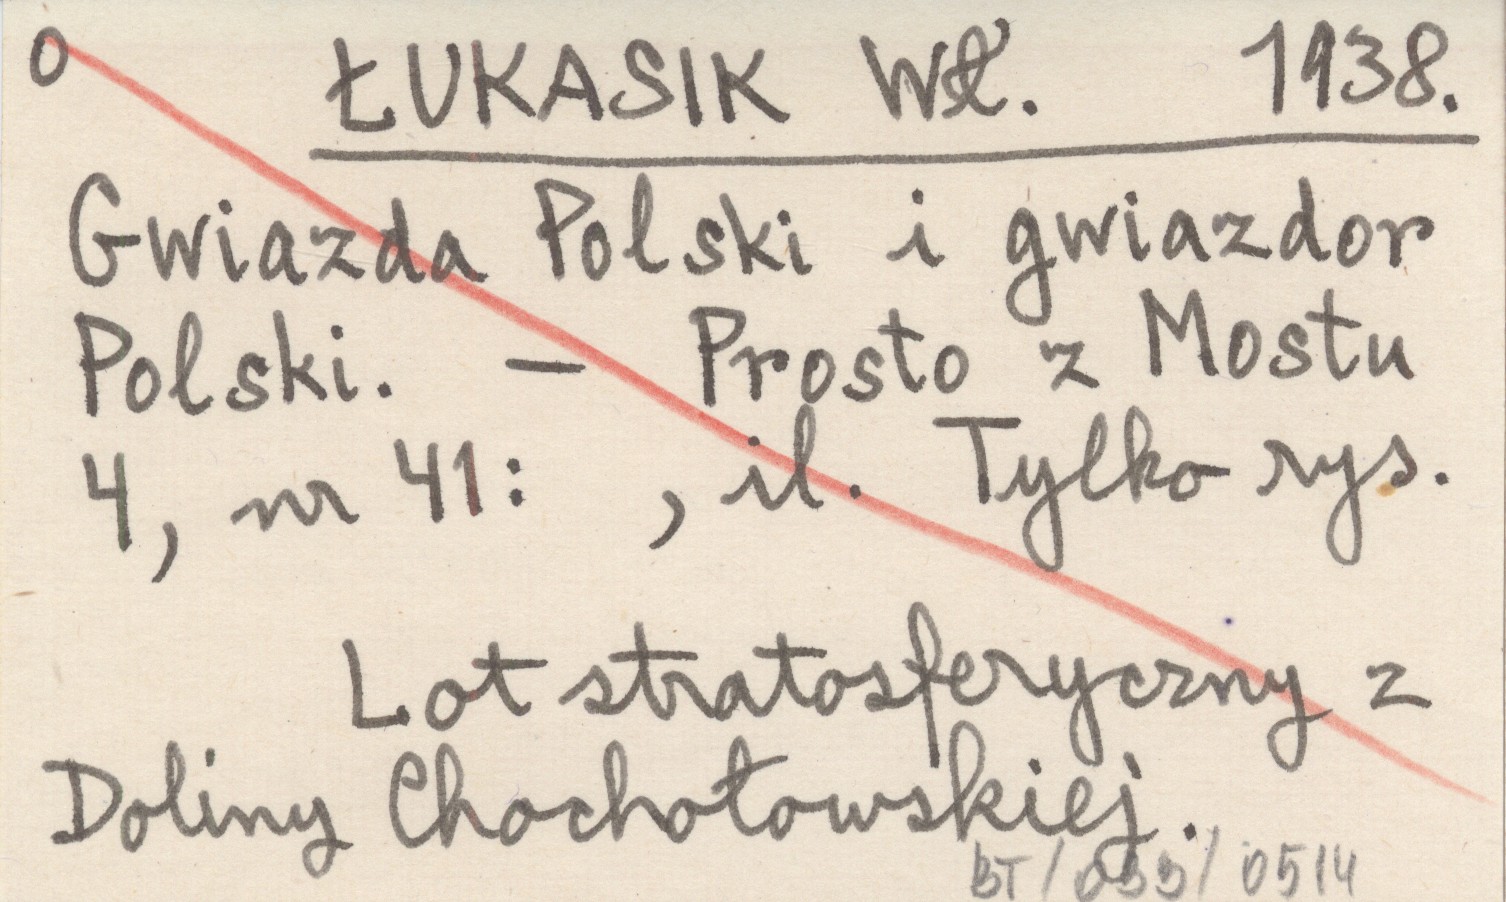 o ŁUKASIK Wł. 1938.
Gwiazda Polski i gwiazdor
Polski. – Prosto z Mostu
4, nr 41: , il. Tylko rys.
Lot stratosferyczny z
Doliny Chochołowskiej.
BT/033/0514